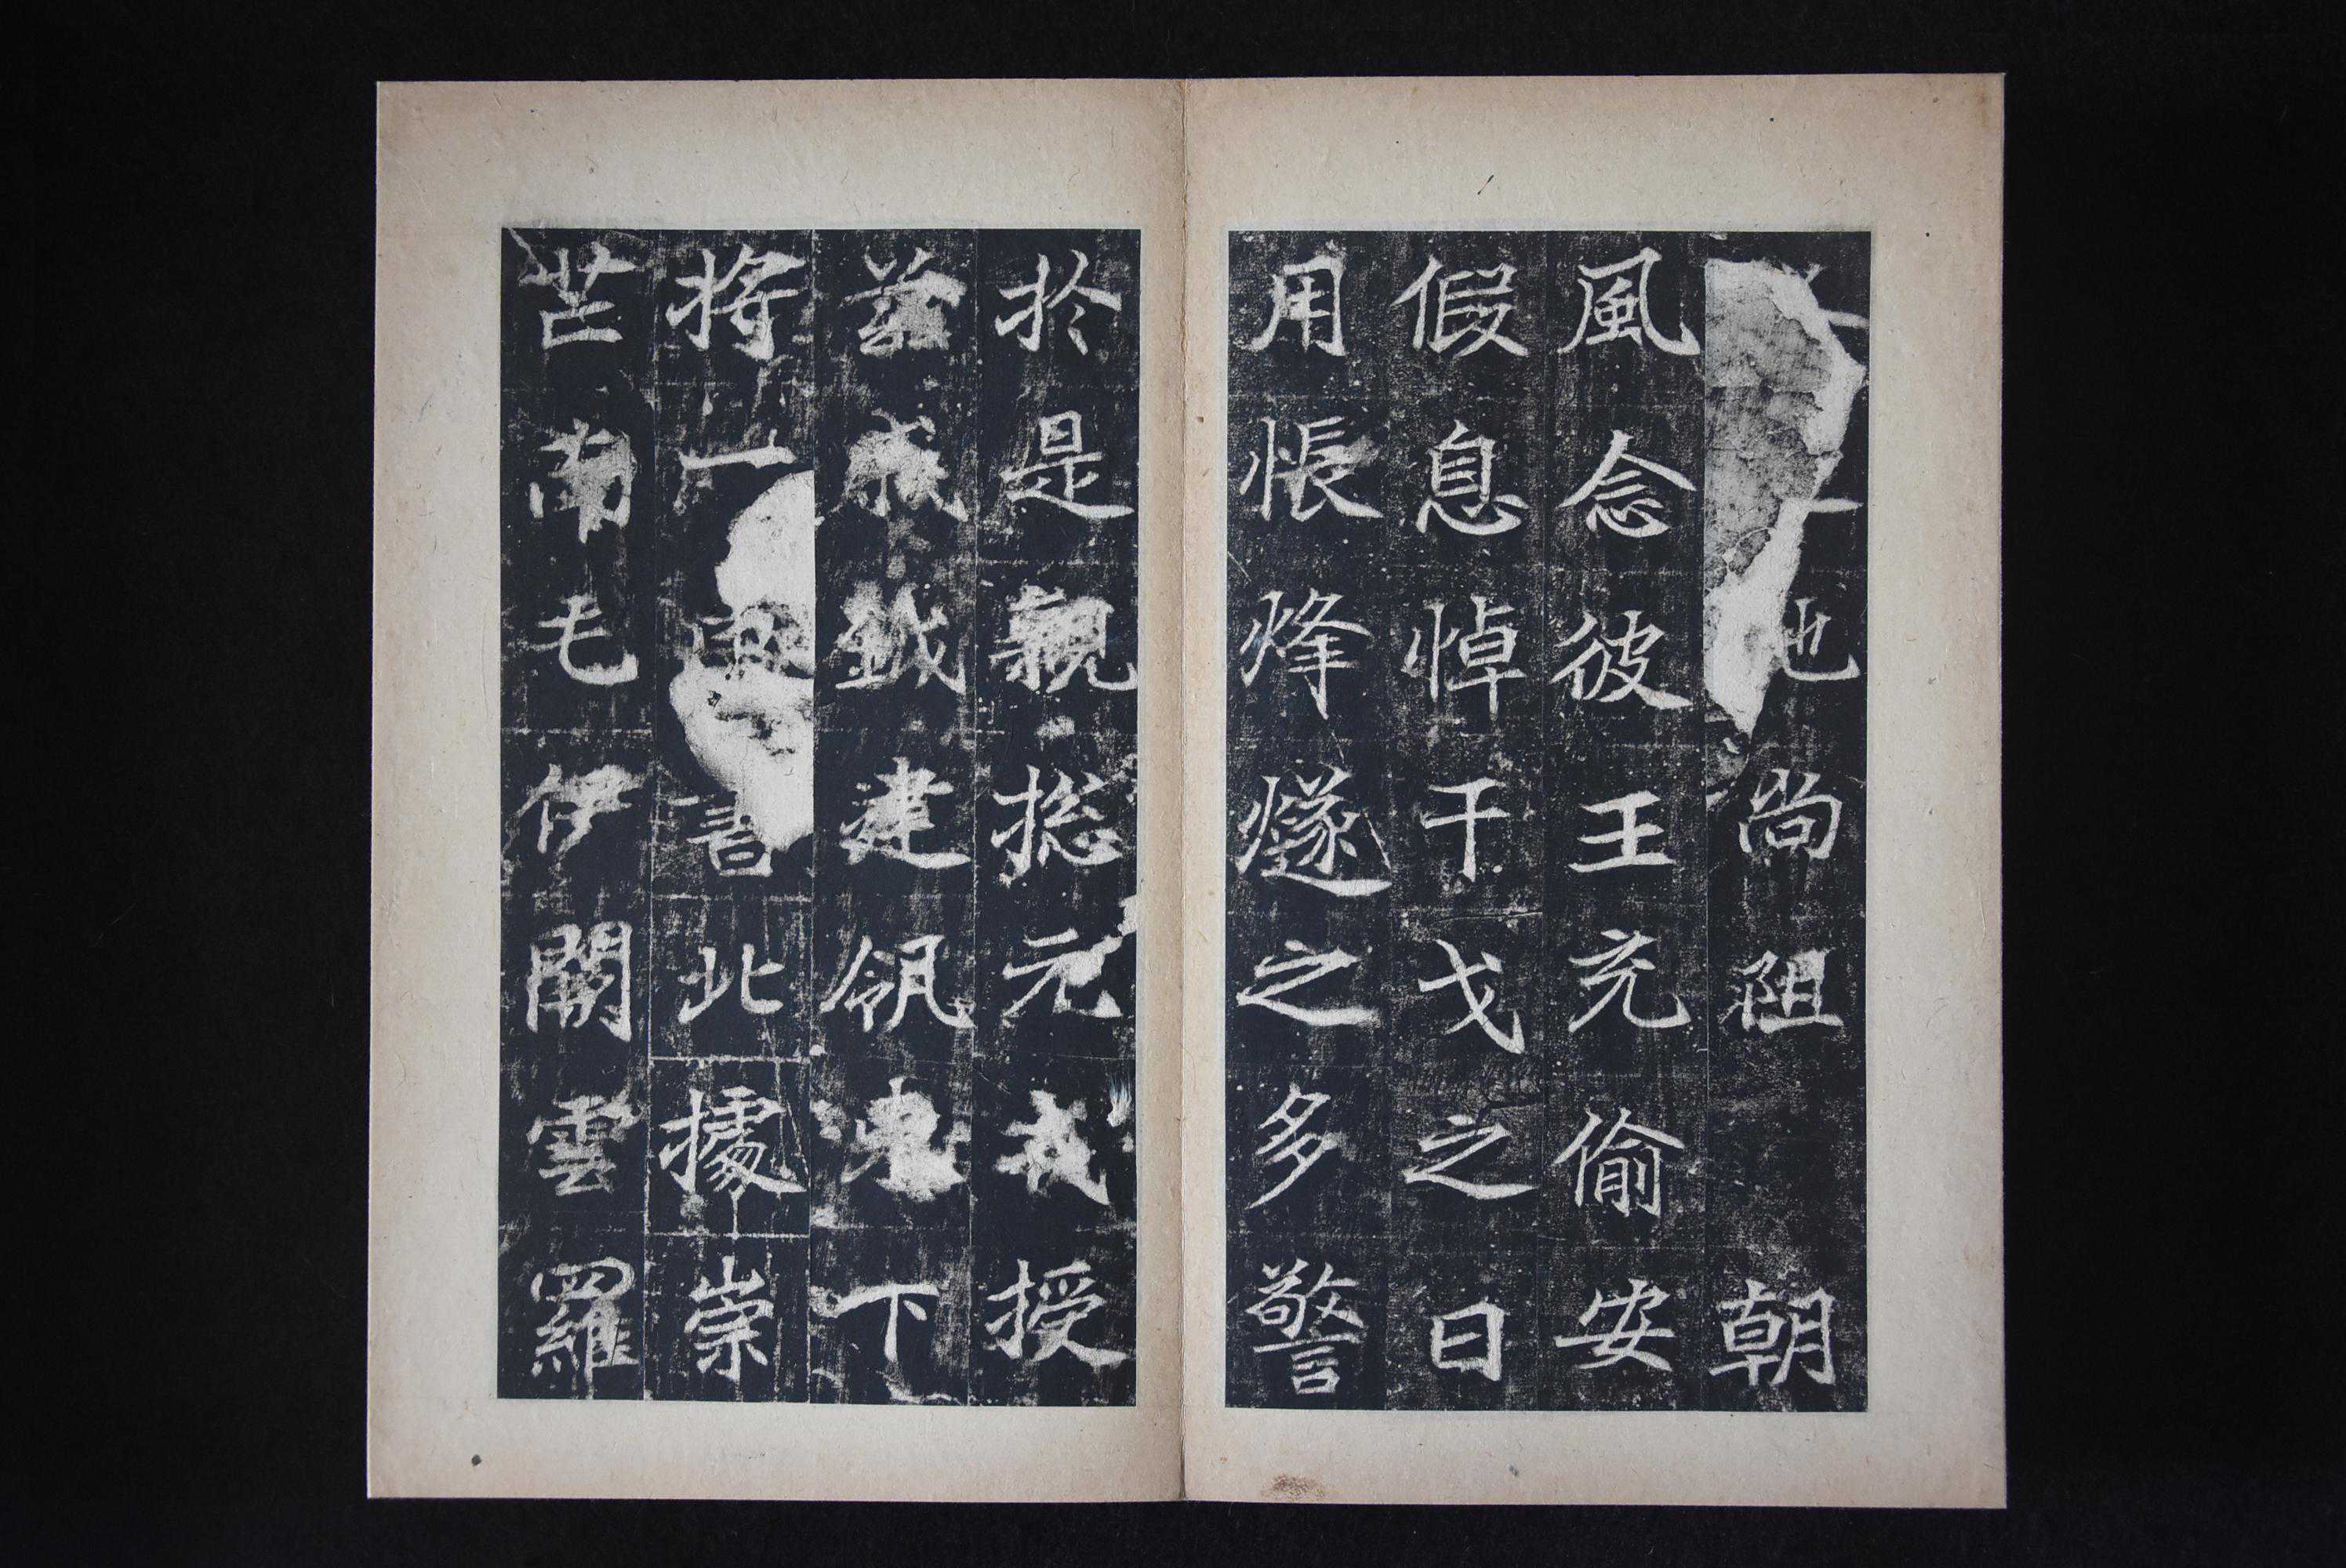 也尚阻朝
風念彼王充偷安
假息悼干戈之日
用悵烽燧之多警
於是親捴元戎授
茲成鉞建瓴下
將一書北據崇
芒南毛伊闕雲羅